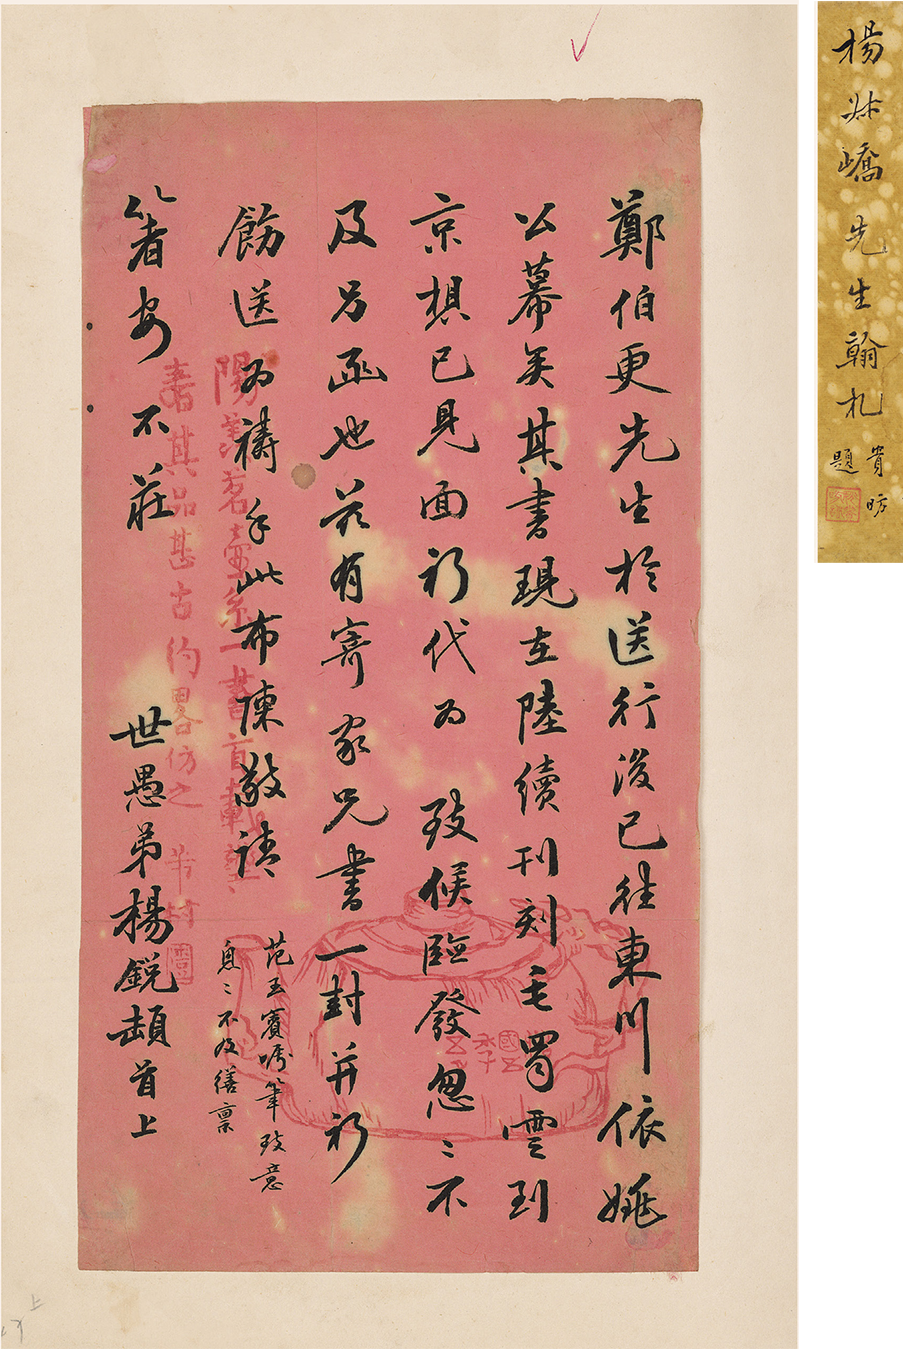 楊叔嶠先生翰札
貴昉
題
鄭伯更先生於送行後已往東川依姚
公幕矣其書現在陸續刊刻毛蜀雲到
京想已見面祈代为 致候臨發怱〻不
及另函也茲有寄家兄書一封并祈
飭送为禱手此布陳敬請
箸安不莊
世愚弟楊銳頓首上
范玉賓嘱筆致意
息〻不及繕稟
陽羨茗壺系一書首載
其品甚古約畧仿之